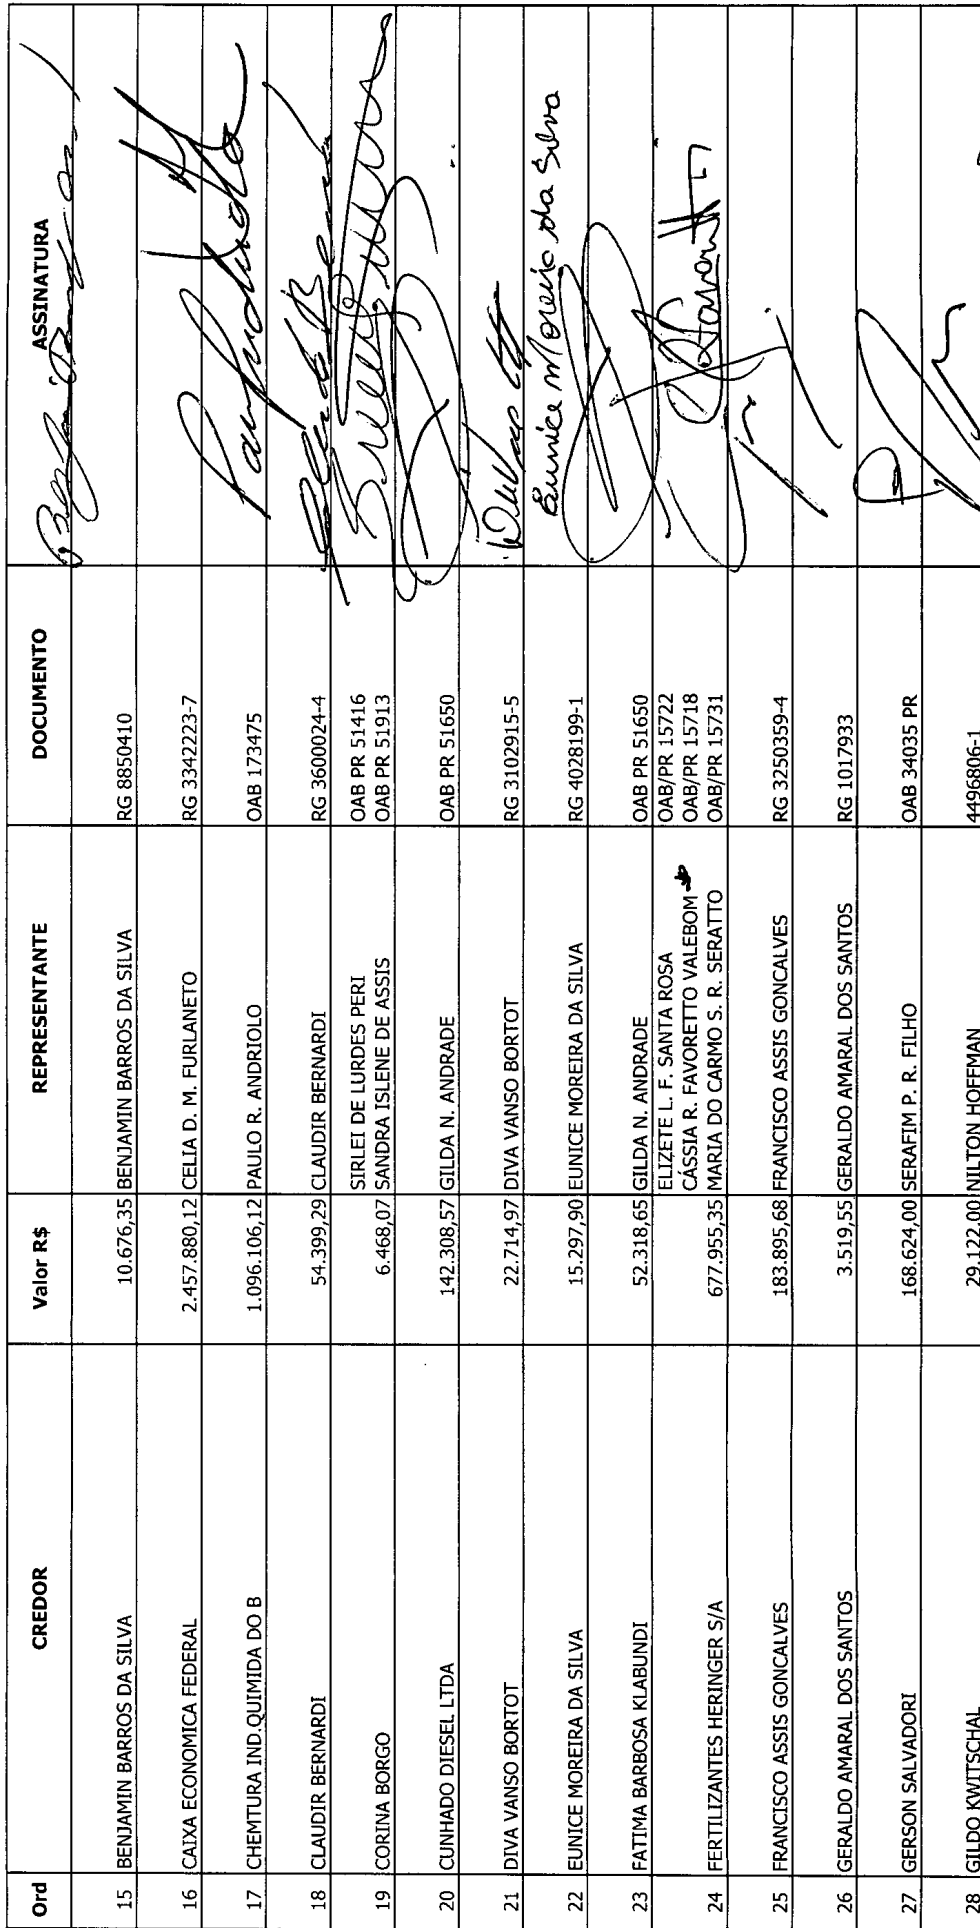 Ord CREDOR Valor R$ REPRESENTANTE DOCUMENTO ASSINATURA
15 BENJAMIN BARROS DA SILVA 10.676,35 BENJAMIN BARROS DA SILVA RG 8850410
16 CAIXA ECONOMICA FEDERAL 2.457.880,12 CELIA D. M. FURLANETO RG 3342223-7
17 CHEMTURA IND.QUIMIDA DO B 1.096.106,12 PAULO R. ANDRIOLO OAB 173475
18 CLAUDIR BERNARDI 54.399,29 CLAUDIR BERNARDI RG 3600024-4
SIRLEI DE LURDES PERI OAB PR 51416
19 CORINA BORGO 6.468,07 SANDRA ISLENE DE ASSIS OAB PR 51913
20 CUNHADO DIESEL LTDA 142.308,57 GILDA N. ANDRADE OAB PR 51650
21 DIVA VANSO BORTOT 22.714,97 DIVA VANSO BORTOT RG 3102915-5
22 EUNICE MOREIRA DA SILVA 15.297,90 EUNICE MOREIRA DA SILVA RG 4028199-1 Eunice Moreira da Silva
23 FATIMA BARBOSA KLABUNDI 52.318,65 GILDA N. ANDRADE OAB PR 51650
ELIZETE L. F. SANTA ROSA OAB/PR 15722
CÁSSIA R. FAVORETTO VALEBOM OAB/PR 15718
24 FERTILIZANTES HERINGER S/A 677.955,35 MARIA DO CARMO S. R. SERATTO OAB/PR 15731
25 FRANCISCO ASSIS GONCALVES 183.895,68 FRANCISCO ASSIS GONCALVES RG 3250359-4
26 GERALDO AMARAL DOS SANTOS 3.519,55 GERALDO AMARAL DOS SANTOS RG 1017933
27 GERSON SALVADORI 168.624,00 SERAFIM P. R. FILHO OAB 34035 PR
28 GILDO KWITSCHAL 29.122,00 NILTON HOFFMAN 4496806-1